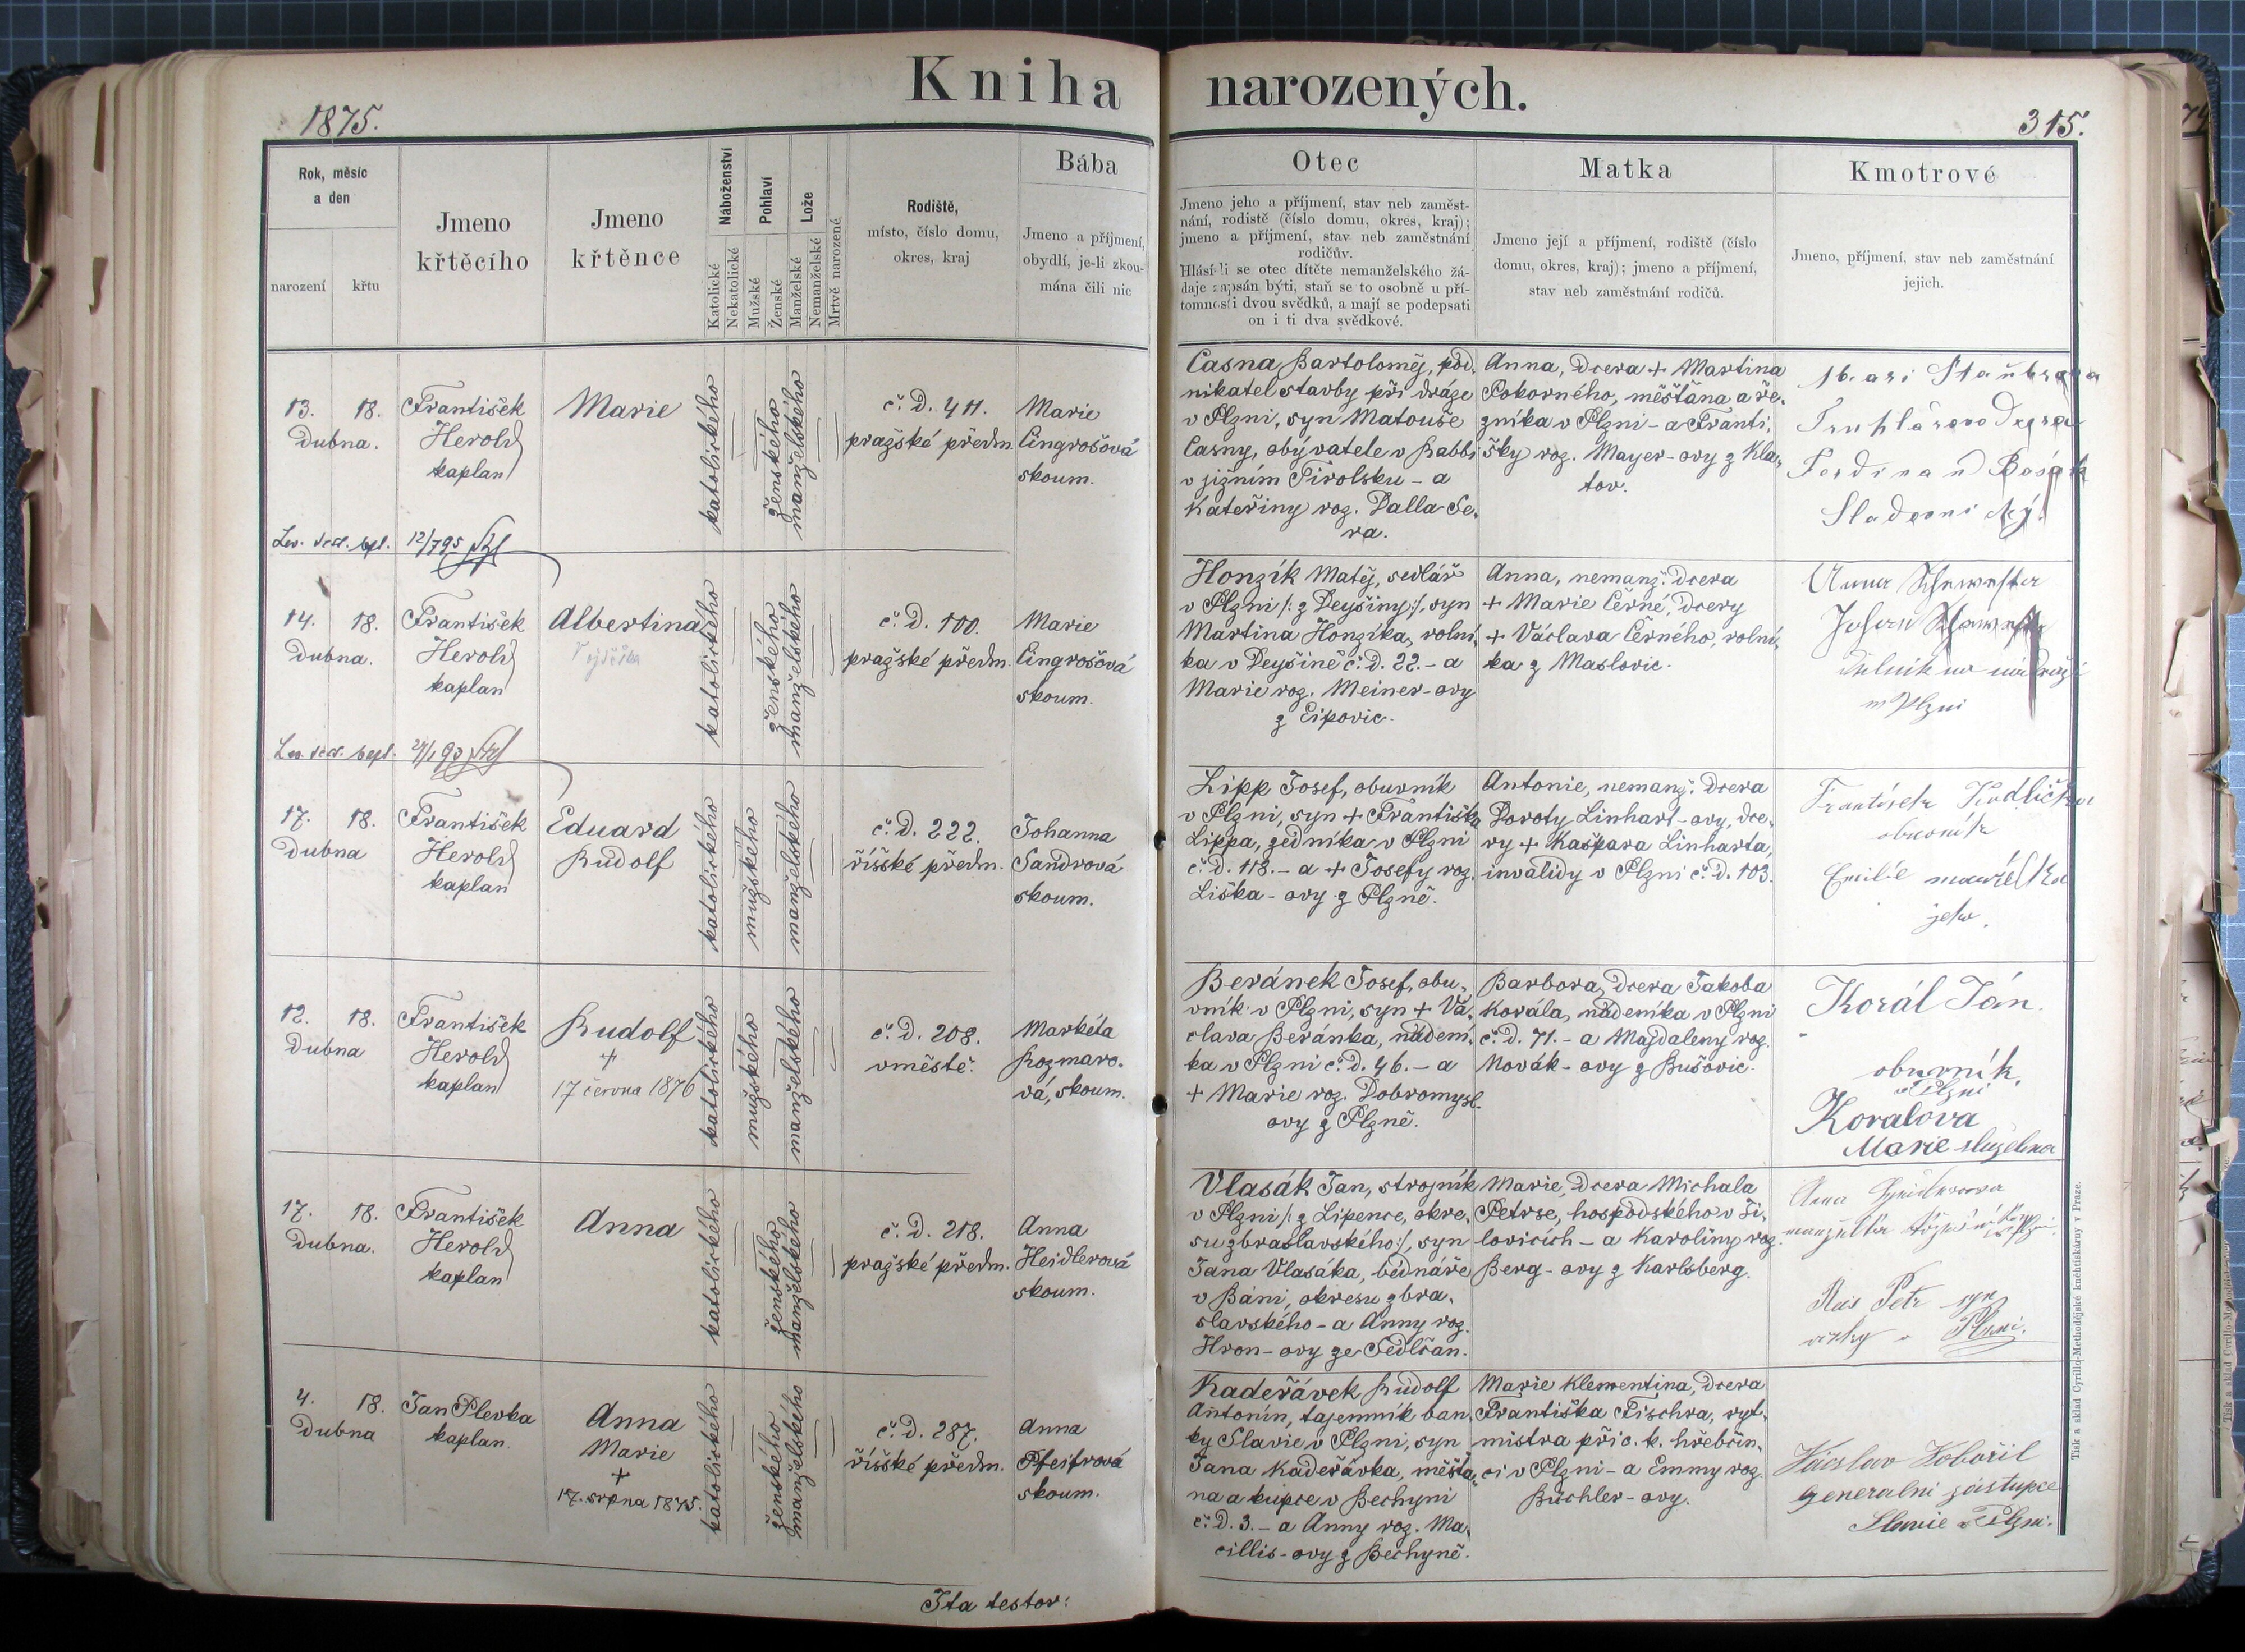 Kniha narozených.
1875.
315.
Rok, měsíc
a den
narození
křtu
Jmeno
křtěcího
Jmeno
křtěnce
Náboženství
Katolické
Nekatolické
Pohlaví
Mužské
Ženské
Lože
Manželské
Nemanželské
Mrtvě narozené
Rodiště,
místo, číslo domu,
okres, kraj
Bába
Jmeno a příjmení,
obydlí, je-li zkou-
mána čili nic
Otec
Jmeno jeho a příjmení, stav neb zaměst-
nání, rodiště (číslo domu, okres, kraj);
jmeno a příjmení, stav neb zaměstnání
rodičův.
Hlásí-li se otec dítěte nemanželského žá-
daje zapsán býti, staň se to osobně u pří-
tomnosti dvou svědků, a mají se podepsati
on i ti dva svědkové.
Matka
Jmeno její a příjmení, rodiště (číslo
domu, okres, kraj); jmeno a příjmení,
stav neb zaměstnání rodičů.
Kmotrové
Jmeno, příjmení, stav neb zaměstnání
jejich.
13. 18.
Dubna.
František
Herold
kaplan
Marie
katolického
ženského
manželského
č. D. 411.
pražské předm.
Marie
Cingrošová
skoum.
Casna Bartoloměj, pod-
nikatel stavby při dráze
v Plzni, syn Matouše
Casny, obývatele v Babbi
v jižním Tirolsku - a
Kateřiny roz. Dalla Se-
ra.
Anna, Dcera + Martina
Pokorného, měšťana a ře-
zníka v Plzni - a Franti-
šky roz. Mayer-ovy z Kla-
tov.
Ferdinand
Sladovnický.
12/795
14. 18.
Dubna.
František
Herold
kaplan
Albertina
katolického
ženského
manželského
č. D. 100.
pražské předm.
Marie
Cingrošová
skoum.
Honzík Matěj, sedlář
v Plzni /: z Deyšiny:/, syn
Martina Honzíka, rolní-
ka v Deyšině č. D. 22. - a
Marie roz. Meiner-ovy
z Eipovic.
Anna, nemanž. Dcera
+ Marie Černé, Dcery
+ Václava Černého, rolní-
ka z Maslovic.
Anna
Johan
v Plzni
17. 18.
Dubna
František
Herold
kaplan
Eduard
Rudolf
katolického
mužského
manželského
č. D. 222.
říšské předm.
Johanna
Sandrová
skoum.
Lipp Josef, obuvník
v Plzni, syn + Františka
Lippa, zedníka v Plzni
č. D. 118. - a + Josefy roz.
Liška-ovy z Plzně.
Antonie, nemanž. Dcera
Doroty Linhart-ovy, dce-
ry + Kašpara Linharta,
invalidy v Plzni č. D. 103.
František Kudlička
obuvník
Emilie manželka
jeho.
12. 18.
Dubna
František
Herold
kaplan
Rudolf
+
17 června 1876
katolického
mužského
manželského
č. D. 208.
v městě.
Markéta
Rozmaro-
vá, skoum.
Beránek Josef, obu-
vník v Plzni, syn + Vá-
clava Beránka, nádení-
ka v Plzni č. D. 46. - a
+ Marie roz. Dobromysl-
ovy z Plzně.
Barbora, Dcera Jakoba
Korála, nádeníka v Plzni
č. D. 71. - a Majdaleny roz.
Novák-ovy z Bušovic.
Korál Ján.
obuvník,
v Plzni
Koralova
Marie
17. 18.
Dubna.
František
Herold
kaplan
Anna
katolického
ženského
manželského
č. D. 218.
pražské předm.
Anna
Heidlerová
skoum.
Vlasák Jan, strojník
v Plzni /: z Lipence, okre-
su zbraslavského:/, syn
Jana Vlasáka, bednáře
v Báni, okresu zbra-
slavského - a Anny roz.
Hron-ovy ze Sedlčan.
Marie, Dcera Michala
Petrse, hospodského v Ši-
lovicích - a Karolíny roz.
Berg-ovy z Karlsberg.
Anna
Petr syn
Plzni.
4. 18.
Dubna
Jan Plevka
kaplan.
Anna
Marie
+
17. srpna 1875.
katolického
ženského
manželského
č. D. 287.
říšské předm.
Anna
Pfeifrová
skoum.
Kadeřávek Rudolf
Antonín, tajemník ban-
ky Slavie v Plzni, syn
Jana Kadeřávka, měšťa-
na a kupce v Bechyni
č. D. 3. - a Anny roz. Ma-
cillis-ovy z Bechyně.
Marie Klementina, Dcera
Františka Fischra, ryt-
mistra při c. k. hřebčin-
ci v Plzni - a Emmy roz.
Büchler-ovy.
Václav Kobořil
generalni zástupce
Slavie v Plzni.
Ita testor:
Tisk a sklad Cyrillo-Methodějské kněhtiskárny v Praze.